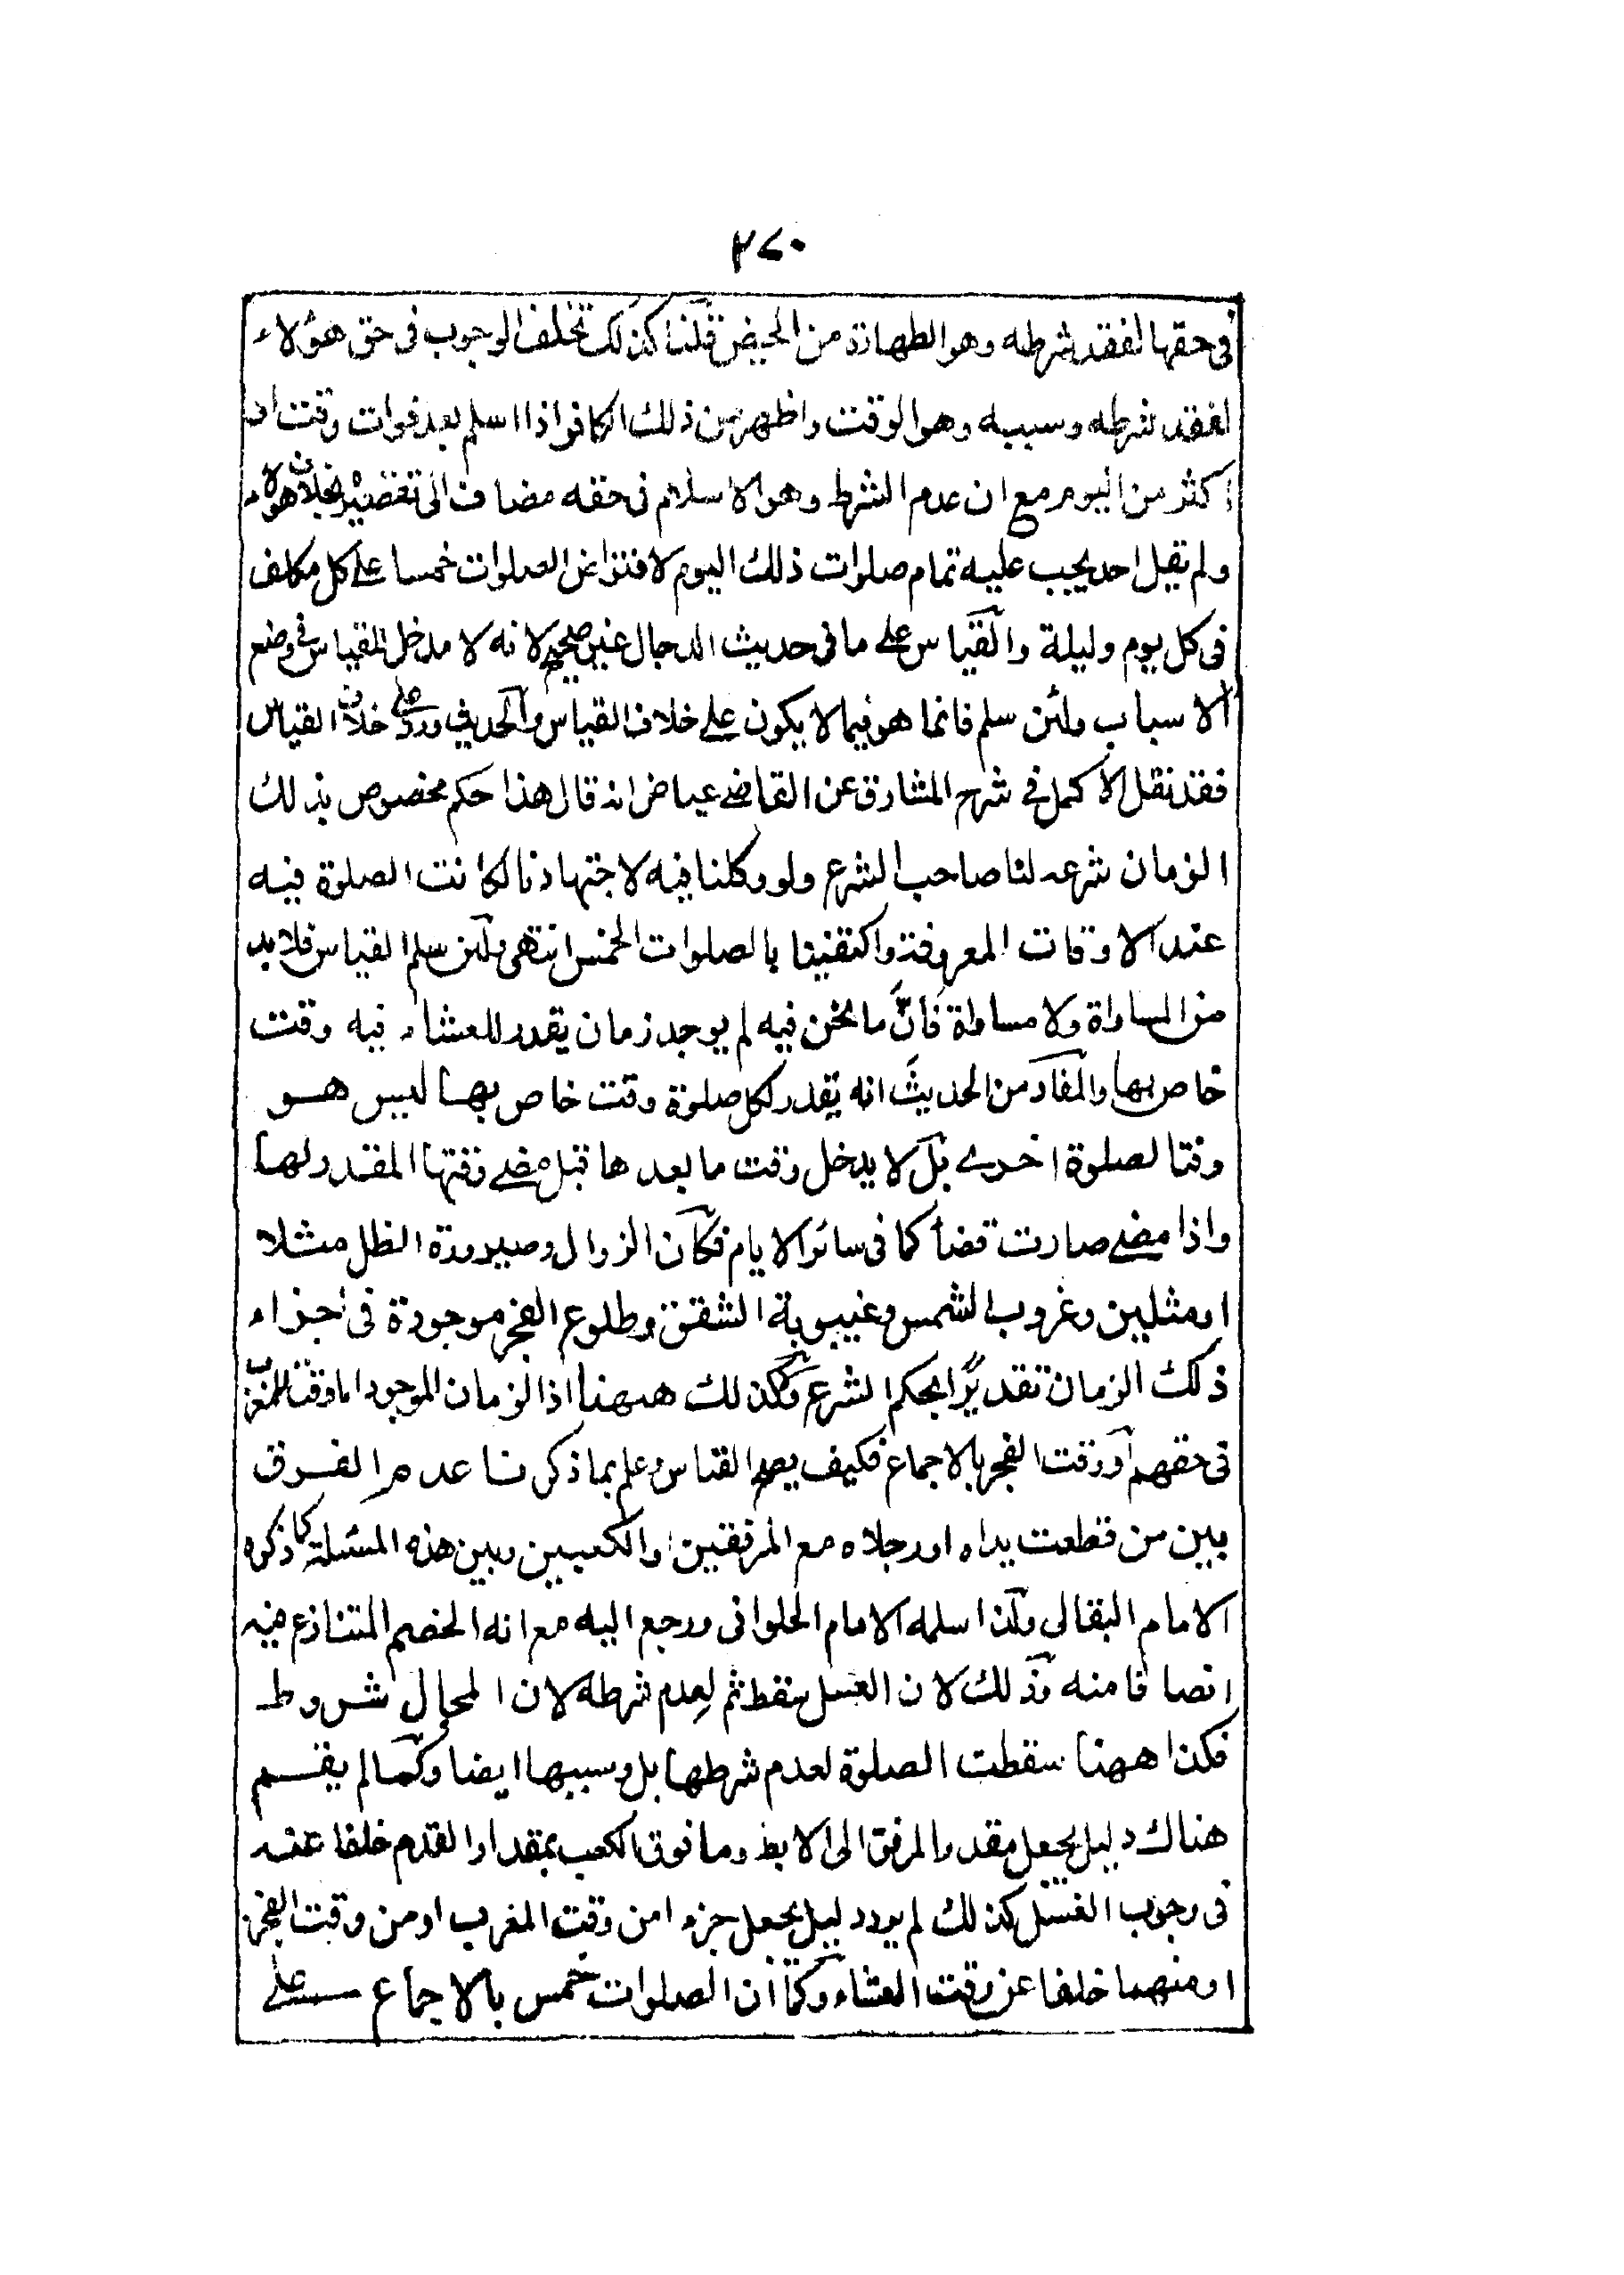 ٢٧٠
فى حقها لفقد شرطه وهو الطهارة من الحيض قلنا كذلك تخلف الوجوب فى حق هؤلاء
لفقد شرطه وسببه وهو الوقت واظهر من ذلك الكافر اذا اسلم بعد فوات وقت او
اكثر من اليوم مع ان عدم الشرط وهو الاسلام فى حقه مضاف الى تقصيره بخلاف هؤلاء
ولم يقل احد يجب عليه تمام صلوات ذلك اليوم لافتراض الصلوات خمسا على كل مكلف
فى كل يوم وليلة والقياس على ما فى حديث الدجال غير صحيح لانه لا مدخل للقياس فى وضع
الاسباب ولئن سلم فانما هو فيما لا يكون على خلاف القياس والحديث ورد على خلاف القياس
فقد نقل الاكمل فى شرح المشارق عن القاضى عياض انه قال هذا حكم مخصوص بذلك
الزمان شرعه لنا صاحب الشرع ولو وكلنا فيه لاجتهادنا لكانت الصلوة فيه
عند الاوقات المعروفة واكتفينا بالصلوات الخمس انتهى ولئن سلم القياس فلا بد
من المساواة ولا مساواة فان ما نحن فيه لم يوجد زمان يقدر للعشاء فيه وقت
خاص بها والمفاد من الحديث انه يقدر لكل صلوة وقت خاص بها ليس هو
وقتا لصلوة اخرى بل لا يدخل وقت ما بعدها قبل مضى وقتها المقدر لها
واذا مضى صارت قضأ كما فى سائر الايام فكان الزوال وصيرورة الظل مثلا
او مثلين وغروب الشمس وغيبوبة الشفق وطلوع الفجر موجودة فى اجزاء
ذلك الزمان تقديرًا بحكم الشرع وكذلك ههنا اذ الزمان الموجود اما وقت للمغرب
فى حقهم او وقت الفجر بالاجماع فكيف يصح القياس وعلم بما ذكرنا عدم الفرق
بين من قطعت يداه او رجلاه مع المرفقين والكعبين وبين هذه المسئلة كما ذكره
الامام البقالى ولذا سلمه الامام الحلوانى ورجع اليه مع انه الخصم المتنازع فيه
انصافا منه وذلك لان الغسل سقط ثم لعدم شرطه لان المحال شروط
فكذا ههنا سقطت الصلوة لعدم شرطها بل وسببها ايضا وكما لم يقم
هناك دليل يجعل مقدر المرفق الى الابط وما فوق الكعب بمقدار القدم خلفا عنه
فى وجوب الغسل كذلك لم يرد دليل يجعل جزء امن وقت المغرب او من وقت الفجر
او منهما خلفا عن وقت العشاء وكما ان الصلوات خمس بالاجماع على